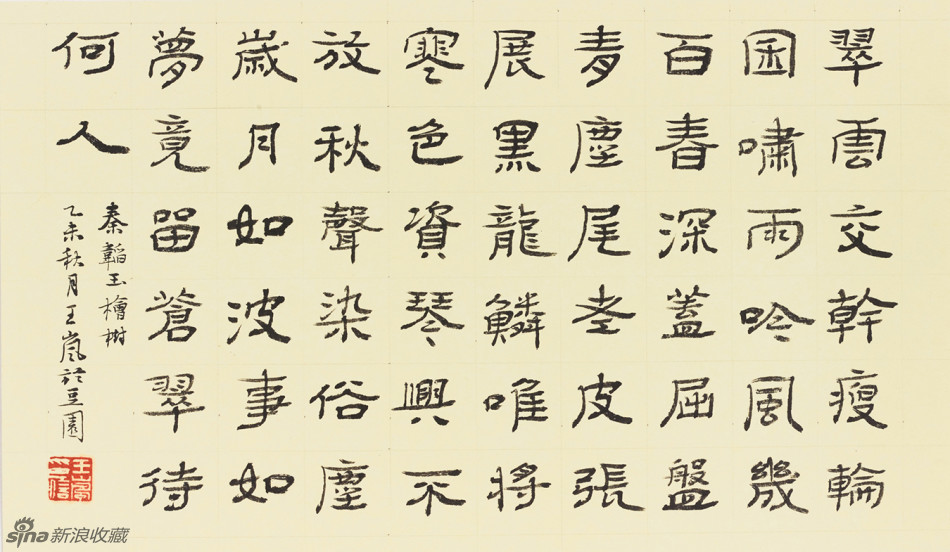 翠雲交幹瘦輪
囷嘯雨吟風幾
百春深蓋屈盤
青塵尾老皮張
展黑龍鱗唯將
寒色資琴興不
放秋聲染俗塵
歲月如波事如
夢竟留蒼翠待
何人
秦韜玉檜樹
乙未秋月王嵐於豆園
sina新浪收藏